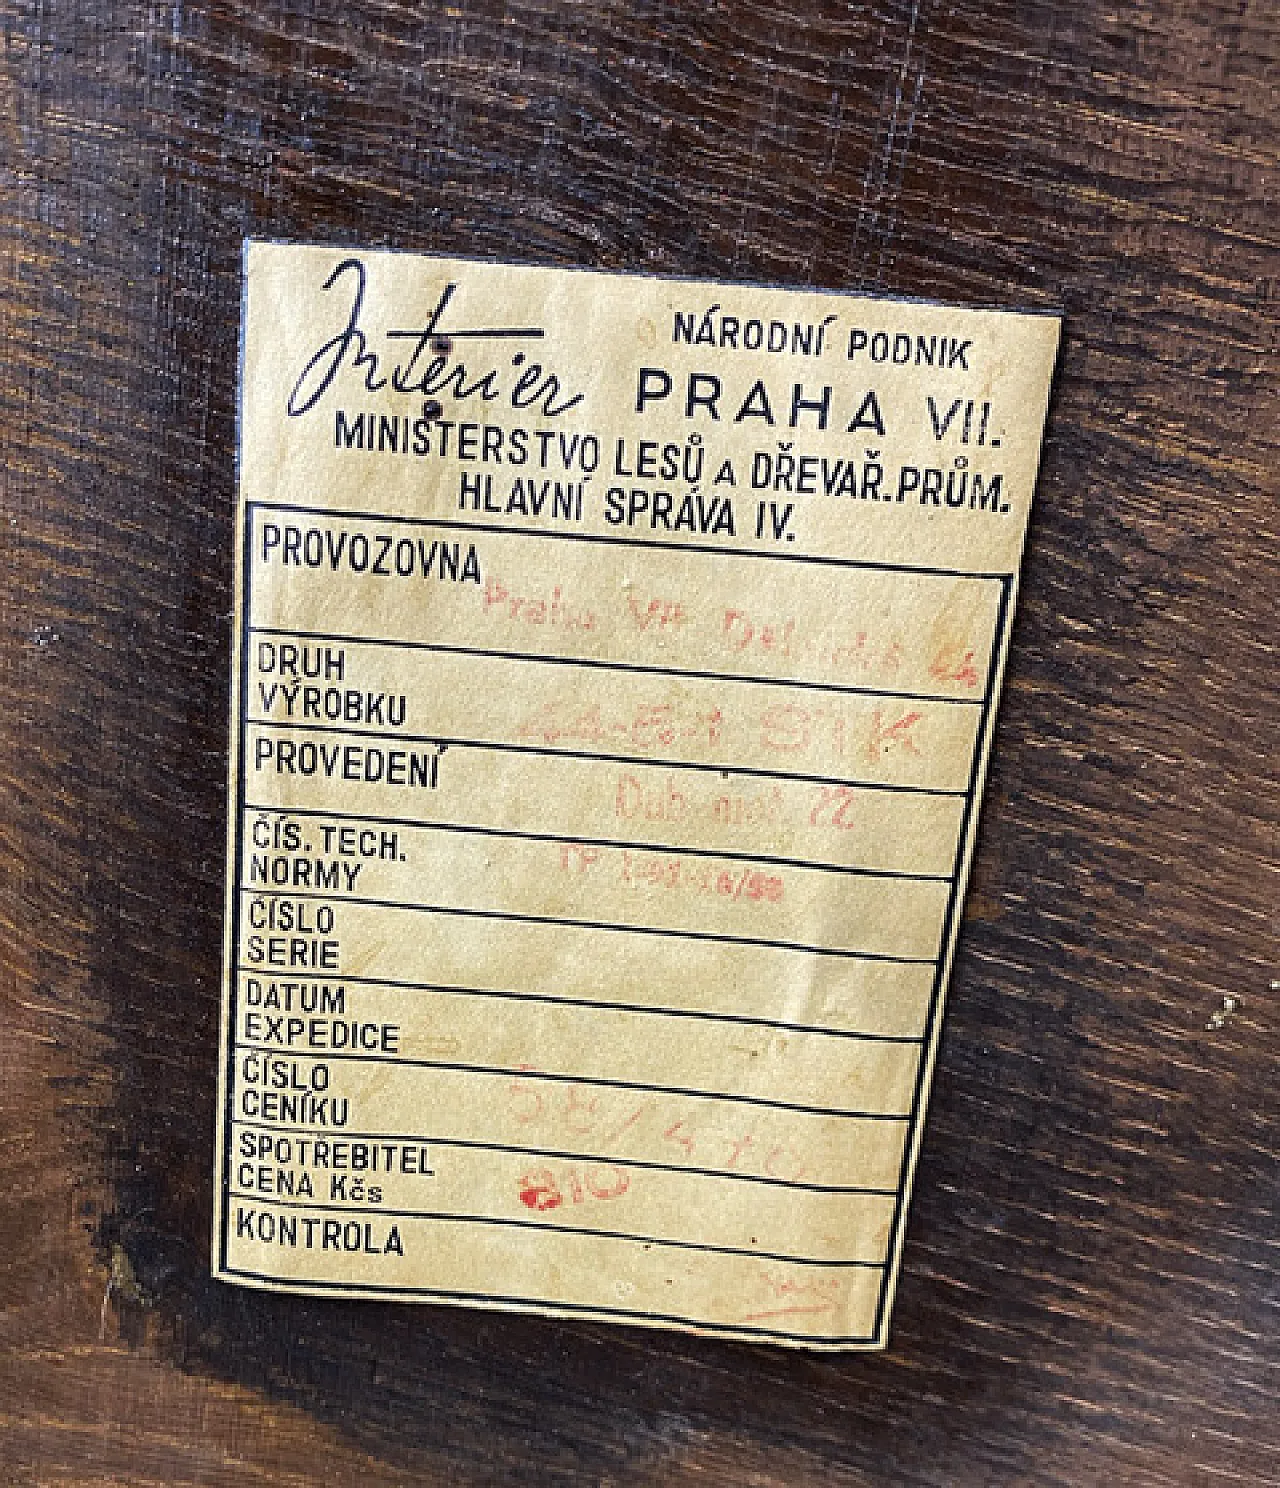 Interier NÁRODNÍ PODNIK
PRAHA VII.
MINISTERSTVO LESŮ A DŘEVAŘ.PRŮM.
HLAVNÍ SPRÁVA IV.
PROVOZOVNA
Praha VII
DRUH
VÝROBKU
PROVEDENÍ
Dub 22
ČÍS. TECH.
NORMY
ČÍSLO
SERIE
DATUM
EXPEDICE
ČÍSLO
CENÍKU
SPOTŘEBITEL
CENA Kčs 810
KONTROLA